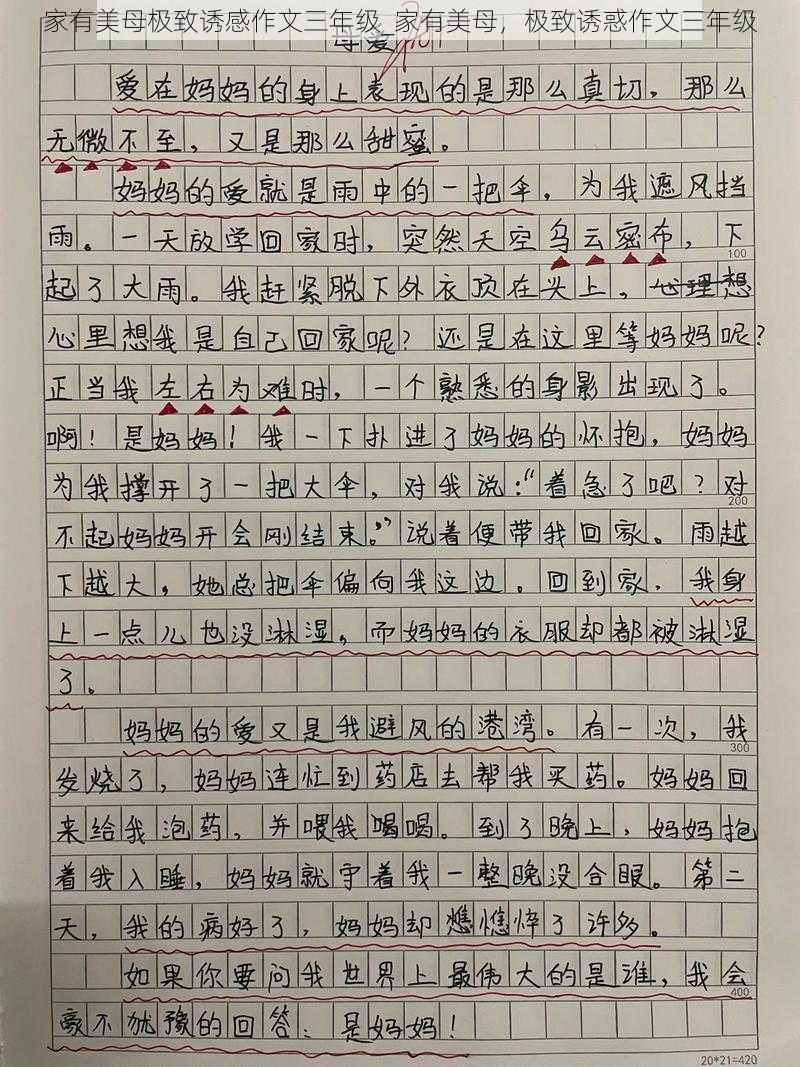 家有美母极致诱感作文三年级_家有美母，极致诱惑作文三年级
母爱
爱在妈妈的身上表现的是那么真切，那么
无微不至，又是那么甜蜜。
妈妈的爱就是雨中的一把伞，为我遮风挡
雨。一天放学回家时，突然天空乌云密布，下
100
起了大雨。我赶紧脱下外衣顶在头上，心理想
心里想我是自己回家呢？还是在这里等妈妈呢？
正当我左右为难时，一个熟悉的身影出现了。
啊！是妈妈！我一下扑进了妈妈的怀抱，妈妈
为我撑开了一把大伞，对我说：“着急了吧？对
200
不起妈妈开会刚结束。”说着便带我回家。雨越
下越大，她总把伞偏向我这边。回到家，我身
上一点儿也没淋湿，而妈妈的衣服却都被淋湿
了。
妈妈的爱又是我避风的港湾。有一次，我
300
发烧了，妈妈连忙到药店去帮我买药。妈妈回
来给我泡药，并喂我喝喝。到了晚上，妈妈抱
着我入睡，妈妈就守着我一整晚没合眼。第二
天，我的病好了，妈妈却憔憔悴了许多。
如果你要问我世界上最伟大的是谁，我会
400
豪不犹豫的回答：是妈妈！
20*21=420